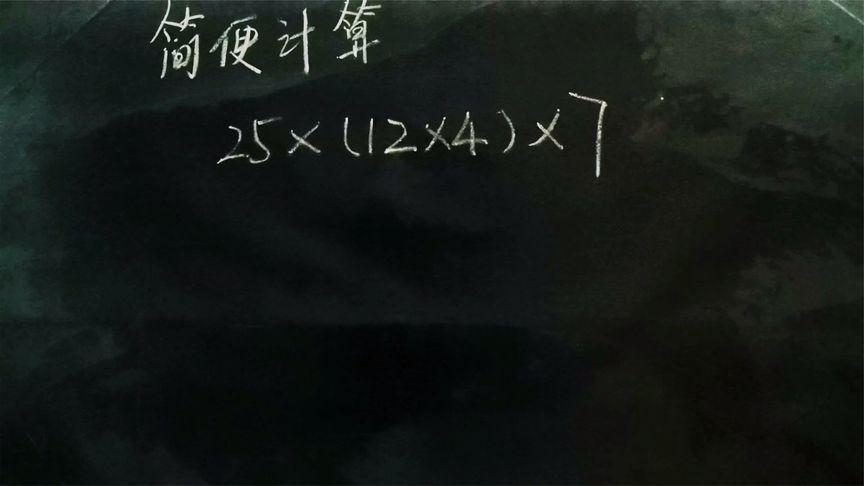 简便计算
25×(12×4)×7